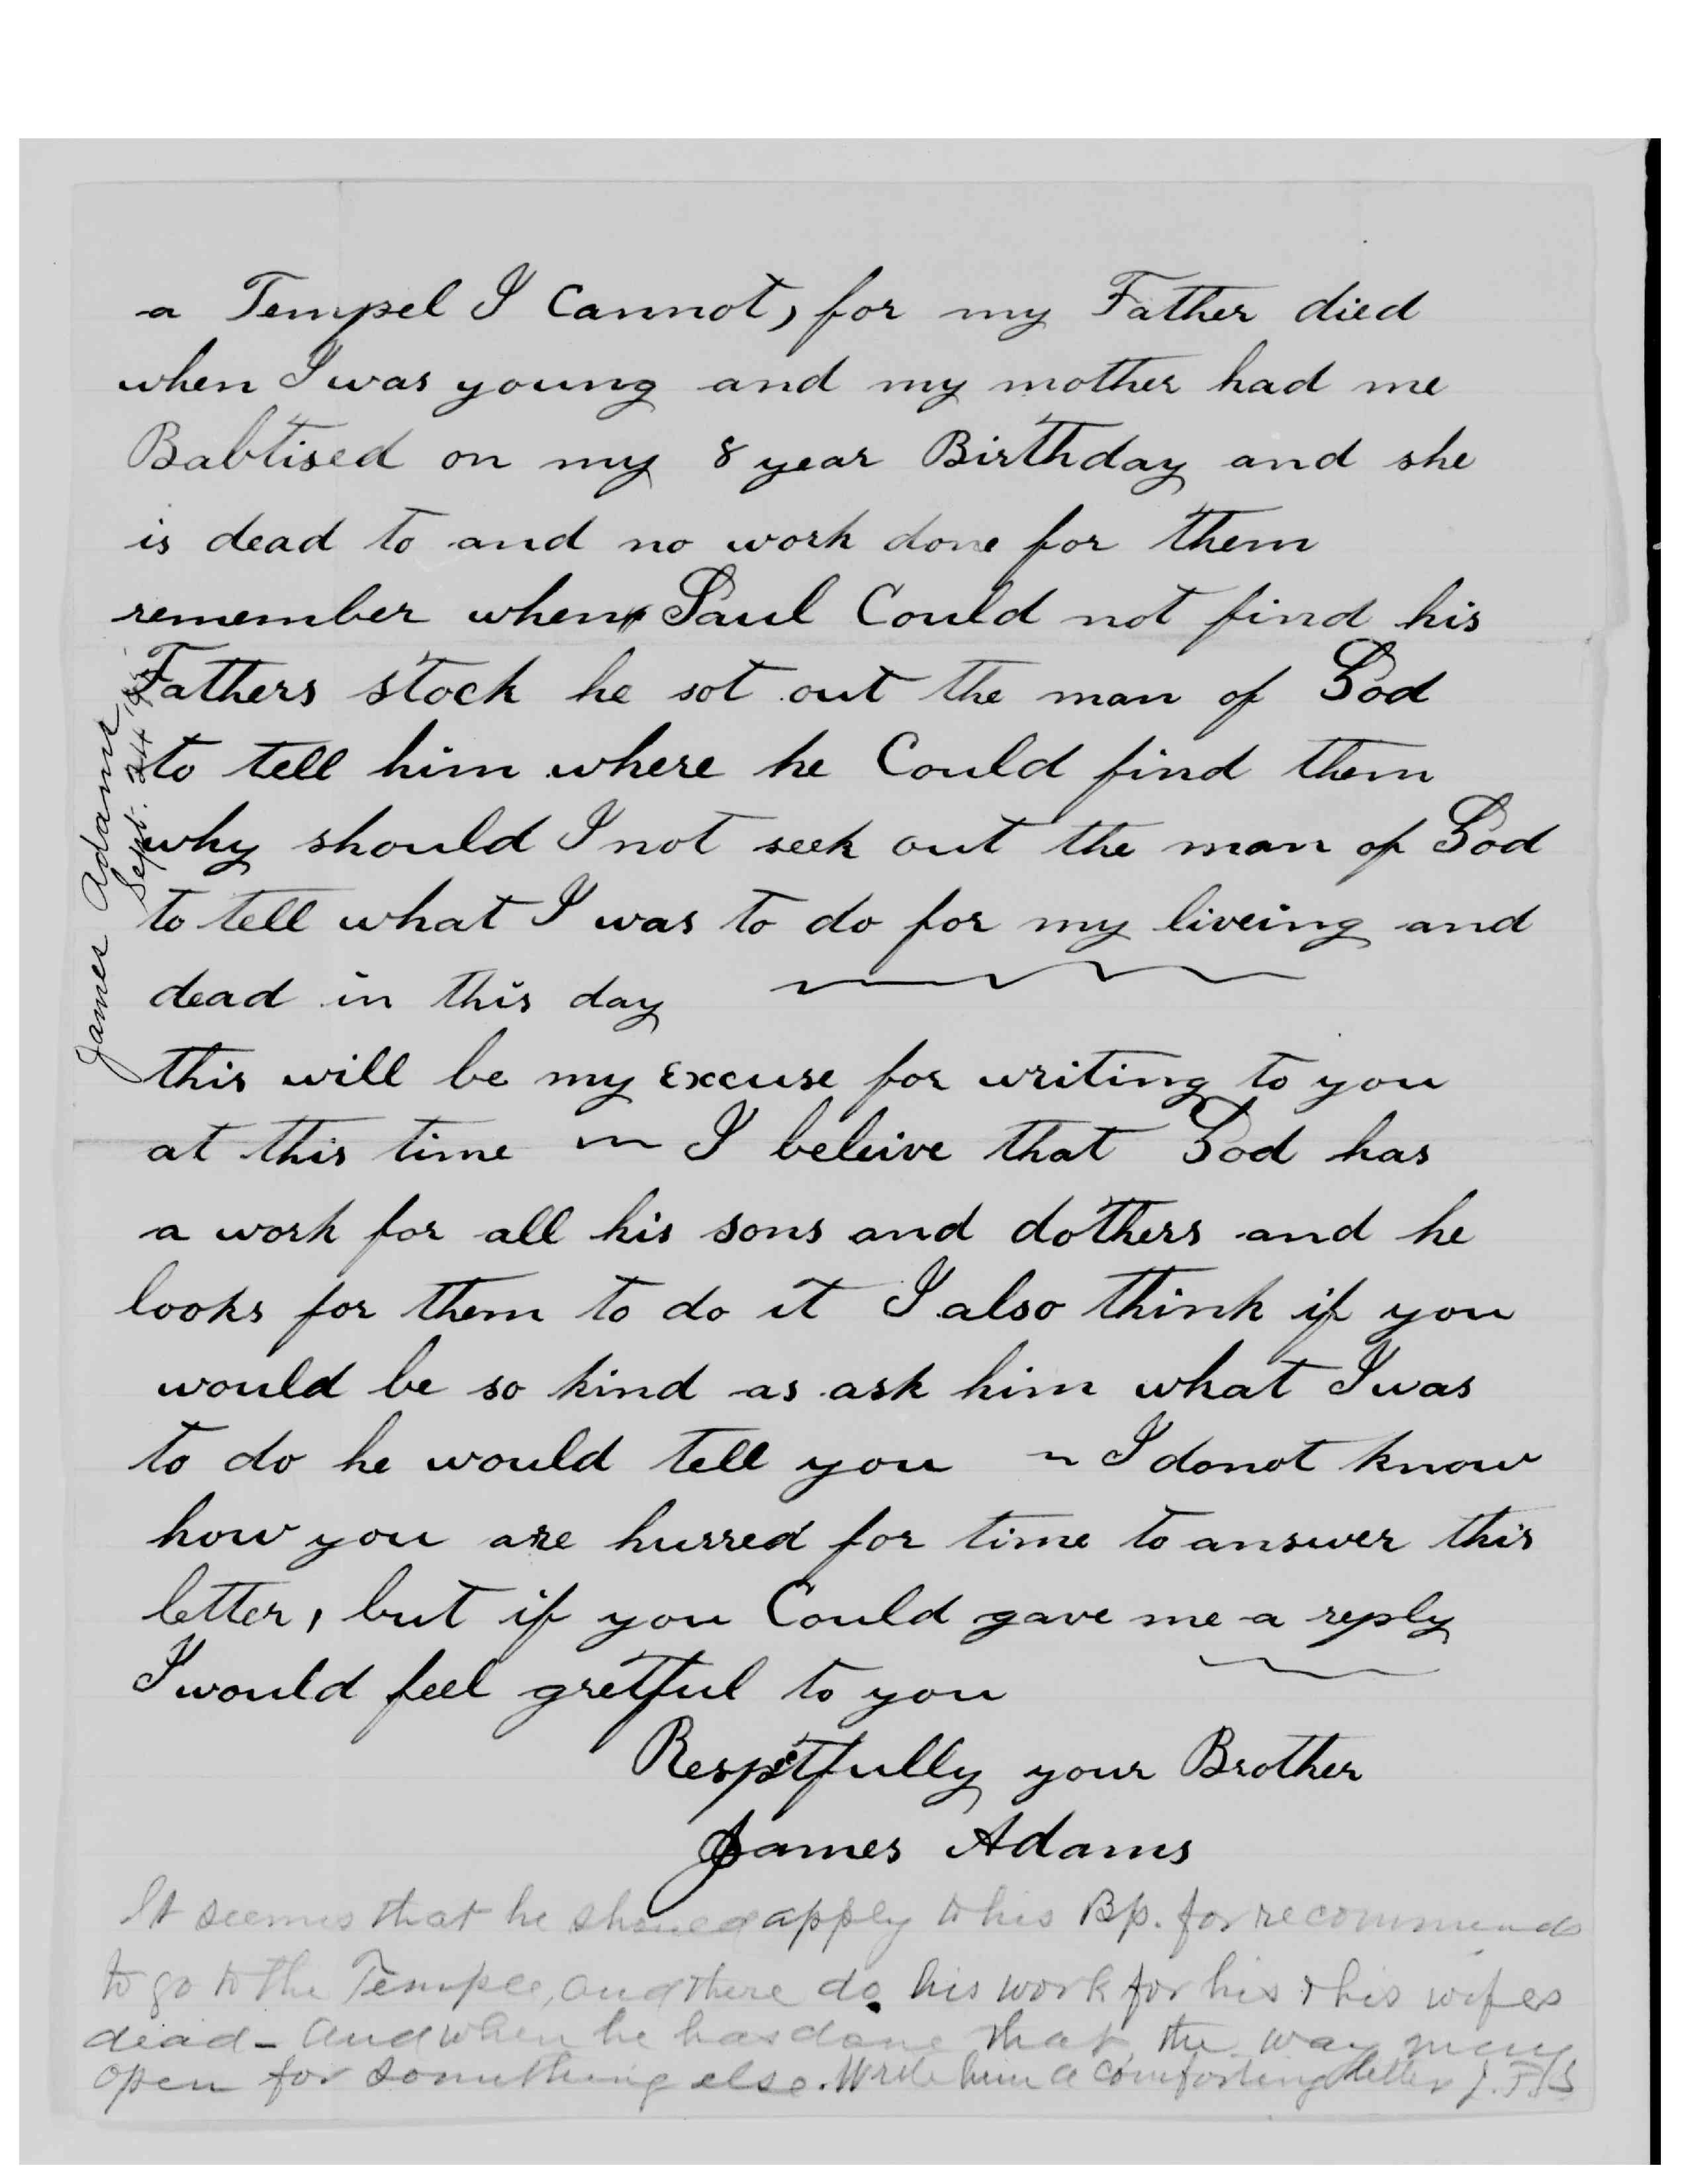 a Tempel I Cannot, for my Father died
when I was young and my mother had me
Babtised on my 8 year Birthday and she
is dead to and no work done for them
remember when Saul Could not find his
Fathers stock he sot out the man of God
to tell him where he Could find them
why should I not seek out the man of God
to tell what I was to do for my liveing and
dead in this day
this will be my Excuse for writing to you
at this time I beleive that God has
a work for all his sons and dothers and he
looks for them to do it I also think if you
would be so kind as ask him what I was
to do he would tell you I donot know
how you are hurred for time to answer this
letter, but if you Could gave me a reply
I would feel gretful to you
Respetfully your Brother
James Adams
It seems that he should apply to his Bp. for recommends
to go to the Temple, and there do his work for his & his wifes
dead - And when he has done that, the way may
open for something else. Write him a comforting letter J.F.S
James Adams
Sept. 24